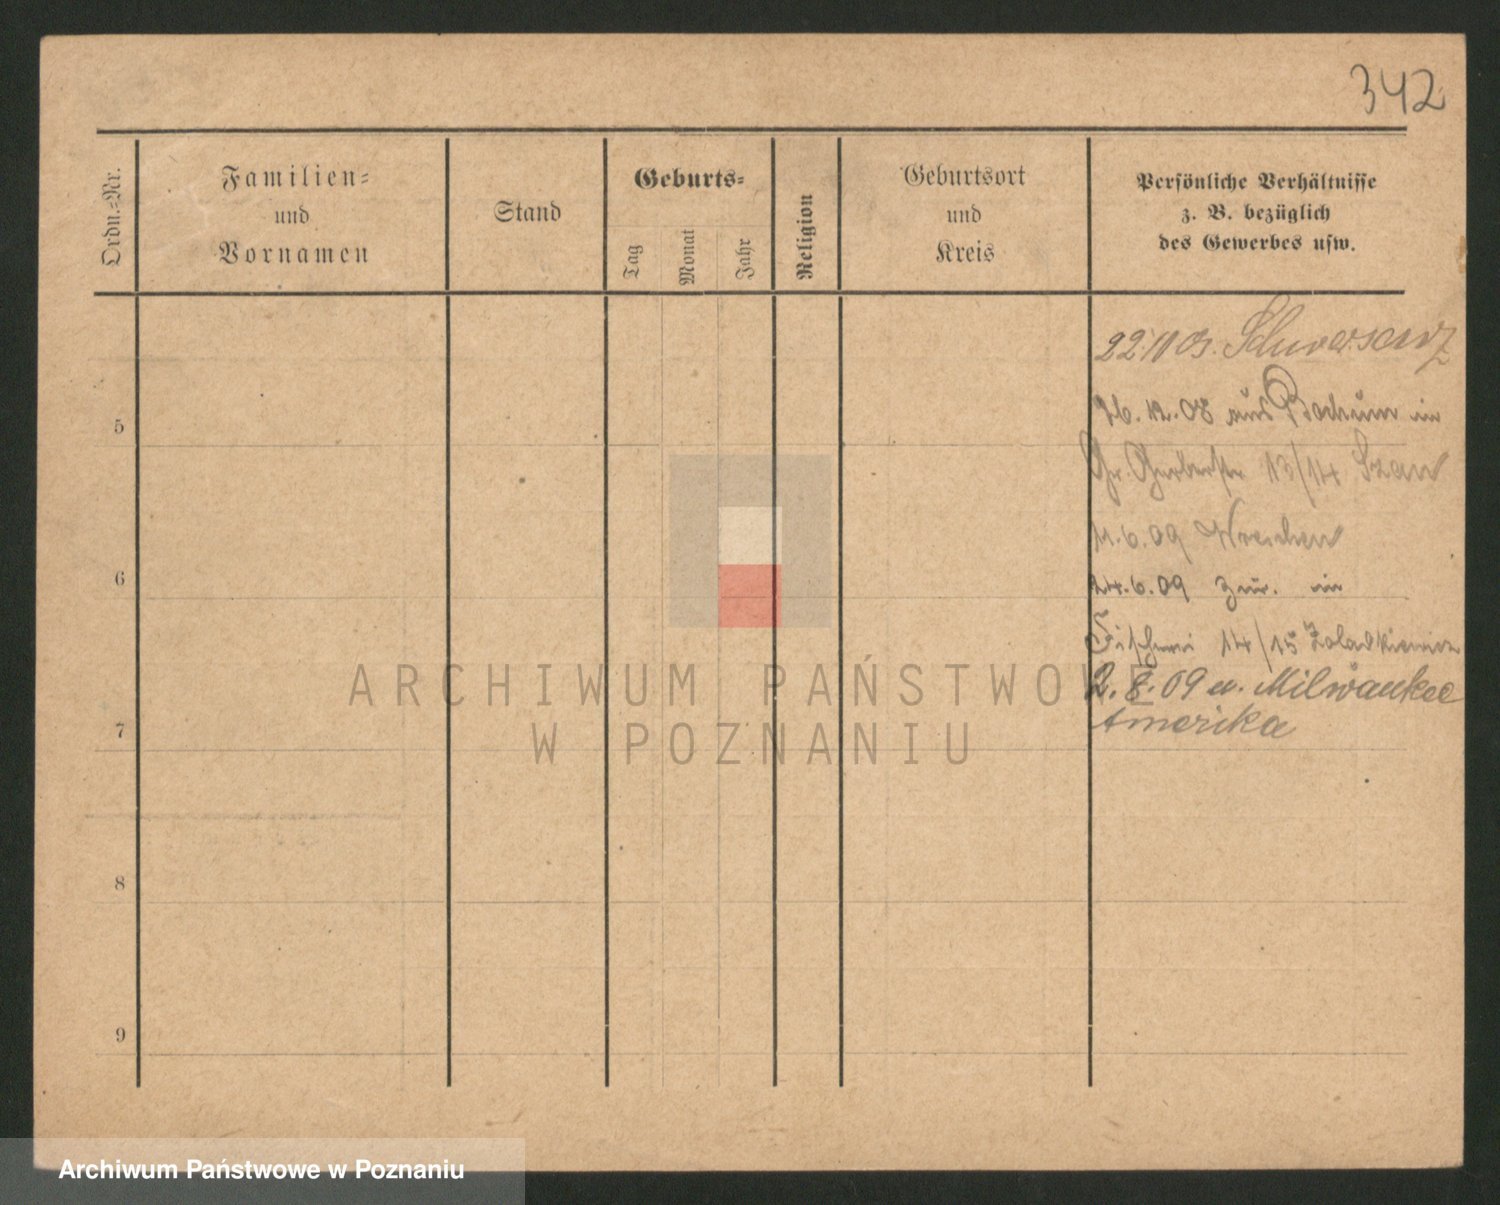 342
Ordn.-Nr.
Familien-
und
Vornamen
Stand
Geburts-
Tag
Monat
Jahr
Religion
Geburtsort
und
Kreis
Persönliche Verhältnisse
z. B. bezüglich
des Gewerbes usw.
22.11 03. Schwersenz
26.12.08 aus Bochum in
5
Gr. Gerberstr 13/14 Szau
11.6.09 Wreschen
6
24.6.09 zur. in
Fischerei 14/15
2.8.09 n. Milwaukee
Amerika
7
8
9
ARCHIWUM PAŃSTWOWE
W POZNANIU
Archiwum Państwowe w Poznaniu